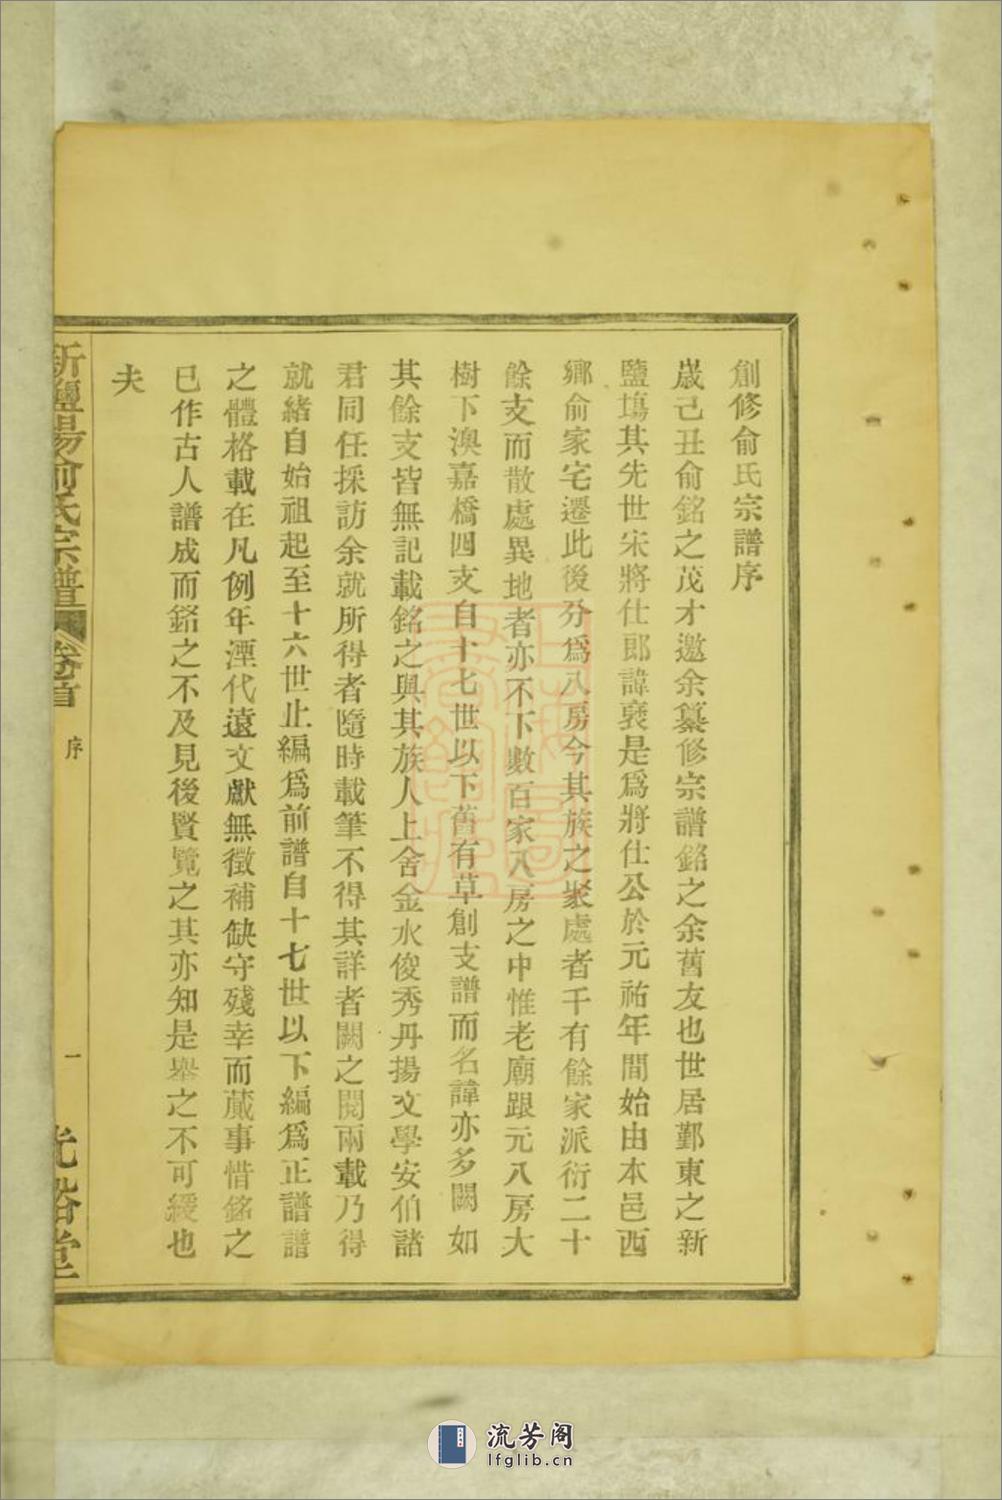 創修俞氏宗譜序
歲己丑俞銘之茂才邀余纂修宗譜銘之余舊友也世居鄞東之新
鹽場其先世宋將仕郎諱襃是爲將仕公於元祐年間始由本邑西
鄉俞家宅遷此後分爲八房今其族之聚處者千有餘家派衍二十
餘支而散處異地者亦不下數百家八房之中惟老廟跟元八房大
樹下澳嘉橋四支自十七世以下舊有草創支譜而名諱亦多闕如
其餘支皆無記載銘之與其族人上舍金水俊秀丹揚文學安伯諸
君同任採訪余就所得者隨時載筆不得其詳者闕之閱兩載乃得
就緒自始祖起至十六世止編爲前譜自十七世以下編爲正譜譜
之體格載在凡例年湮代遠文獻無徵補缺守殘幸而蕆事惜銘之
已作古人譜成而銘之不及見後賢覽之其亦知是舉之不可緩也
夫
新鹽場俞氏宗譜 卷首 序 一 光裕堂
流芳阁
lfglib.cn